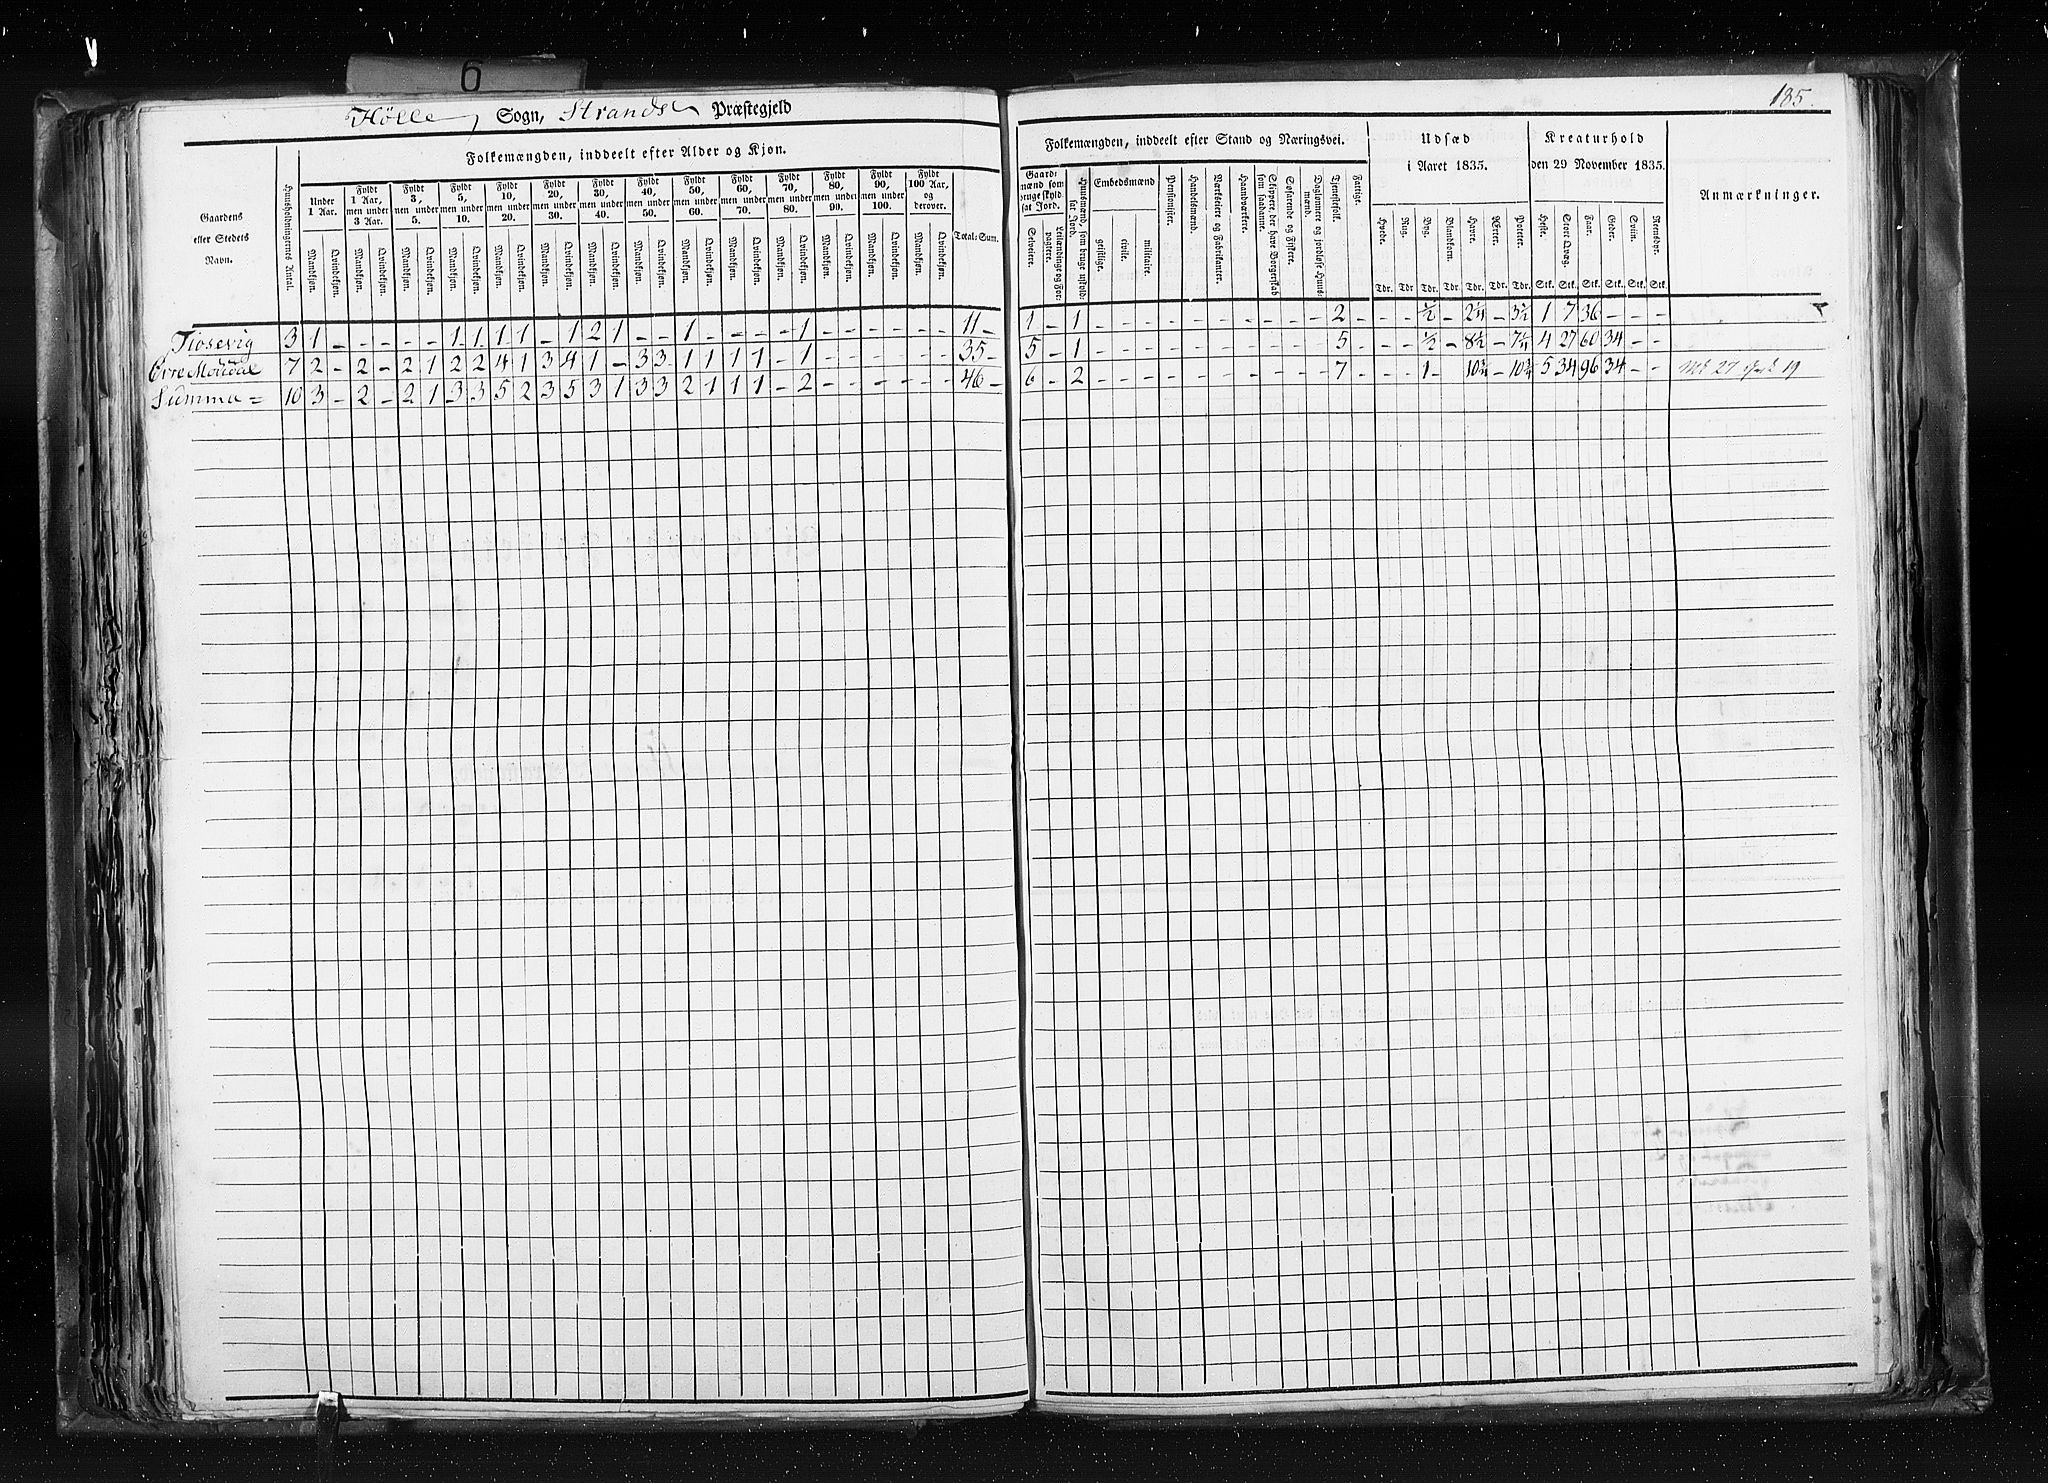 6
Hølle Sogn, Strands Præstegjeld
185.
Gaardens eller Stedets Navn.
Huusholdningernes Antal.
Folkemængden, inddeelt efter Alder og Kjøn.
Under 1 Aar. Fyldt 1 Aar, men under 3 Aar. Fyldt 3, men under 5. Fyldt 5, men under 10. Fyldt 10, men under 20. Fyldt 20, men under 30. Fyldt 30, men under 40. Fyldt 40, men under 50. Fyldt 50, men under 60. Fyldt 60, men under 70. Fyldt 70, men under 80. Fyldt 80, men under 90. Fyldt 90, men under 100. Fyldt 100 Aar, og derover. Total-Sum.
Mandkjøn. Qvindekjøn. Mandkjøn. Qvindekjøn. Mandkjøn. Qvindekjøn. Mandkjøn. Qvindekjøn. Mandkjøn. Qvindekjøn. Mandkjøn. Qvindekjøn. Mandkjøn. Qvindekjøn. Mandkjøn. Qvindekjøn. Mandkjøn. Qvindekjøn. Mandkjøn. Qvindekjøn. Mandkjøn. Qvindekjøn. Mandkjøn. Qvindekjøn. Mandkjøn. Qvindekjøn. Mandkjøn. Qvindekjøn.
Tiosevig 3 1 - - - - - 1 1 1 1 - 1 2 1 - - 1 - - - - 1 - - - - - - 11 -
Øvre Moudal 7 2 - 2 - 2 1 2 2 4 1 3 4 1 - 3 3 1 1 1 1 - 1 - - - - - - 35 -
Summa = 10 3 - 2 - 2 1 3 3 5 2 3 5 3 1 3 3 2 1 1 1 - 2 - - - - - - 46 -
Folkemængden, inddeelt efter Stand og Næringsvei.
Gaardmænd som bruge skyldsat Jord. Selveiere. Leilændinge og Forpagtere.
Huusmænd, som bruge uskyldsat Jord.
Embedsmænd geistlige. civile. militaire.
Pensionister.
Handelsmænd.
Værkseiere og Fabrikanter.
Haandværkere.
Skippere, der have Borgerskab som saadanne.
Søfarende og Fiskere.
Dagslønnere og jordløse Huusmænd.
Tjenestefolk.
Fattige.
Udsæd i Aaret 1835.
Hvede. Rug. Byg. Blandkorn. Havre. Ærter. Poteter.
Tdr. Tdr Tdr. Tdr. Tdr. Tdr. Tdr.
Kreaturhold den 29 November 1835.
Heste. Stort Qvæg. Faar. Geder. Sviin. Reensdyr.
Stk. Stk. Stk. Stk. Stk. Stk.
Anmærkninger.
1 - 1 - - - - - - - - - - - 2 - - - ½ - 2¼ - 3½ 1 7 36 - - -
5 - 1 - - - - - - - - - - - 5 - - - ½ - 8½ - 7¼ 4 27 60 34 - -
6 - 2 - - - - - - - - - - - 7 - - - 1 - 10¾ - 10¾ 5 34 96 34 - -